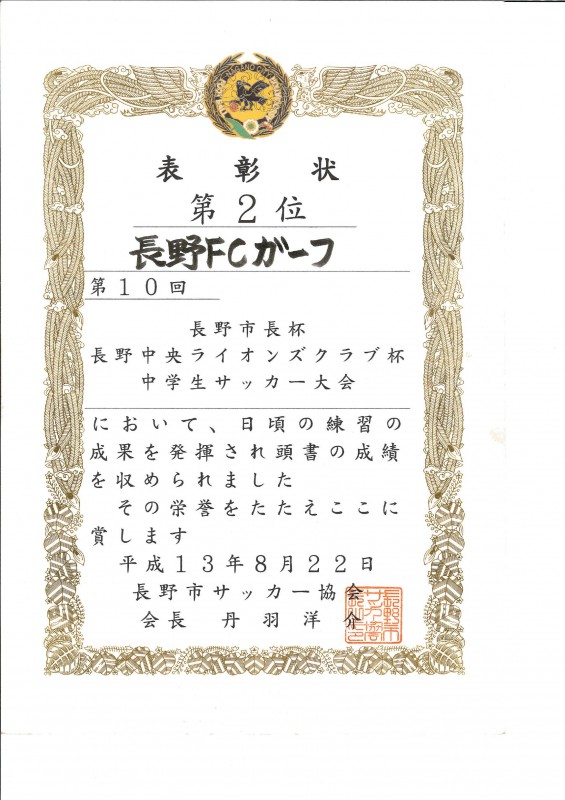 NAGANO CITY
表彰状
第2位
長野FCガーフ
第10回
長野市長杯
長野中央ライオンズクラブ杯
中学生サッカー大会
において、日頃の練習の
成果を発揮され頭書の成績
を収められました
その栄誉をたたえここに
賞します
平成13年8月22日
長野市サッカー協会
会長 丹羽洋介